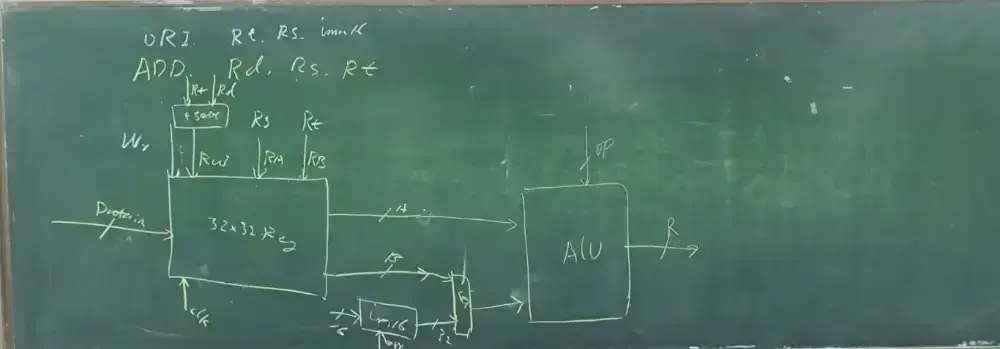 ORI. Rt. Rs. imm16
ADD. Rd. Rs. Rt
Rt Rd
Rs Rt
Rw RA RB
Datain
32×32 Reg
A
B
imm16
16
32
OP
ALU
R